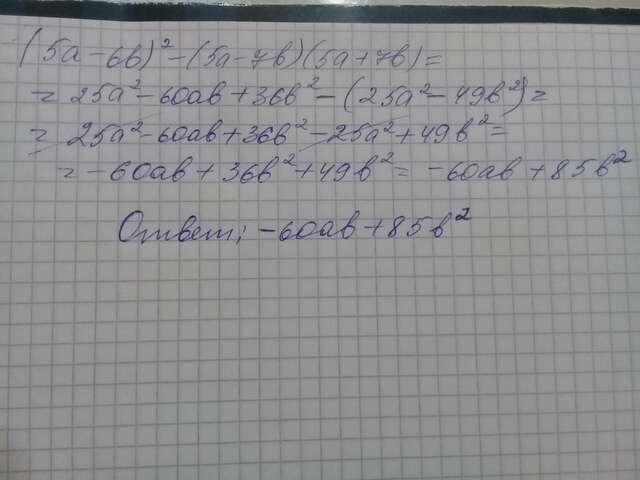 (5a-6b)²-(5a-7b)(5a+7b)=
= 25a²-60ab+36b²-(25a²-49b²)=
= 25a²-60ab+36b²-25a²+49b²=
= -60ab+36b²+49b²= -60ab+85b²
Ответ; -60ab+85b²